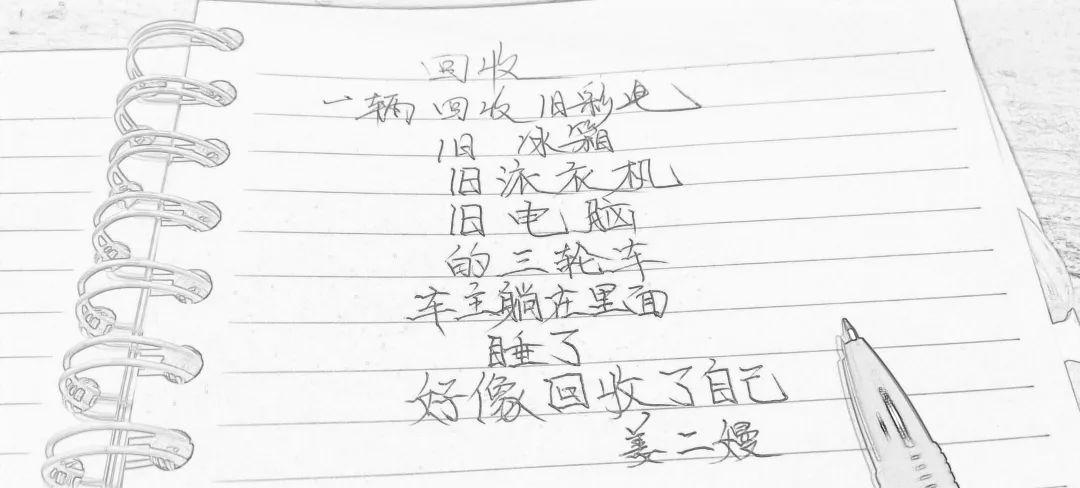 回收
一辆回收旧彩电
旧 冰箱
旧洗衣机
旧电脑
的三轮车
车主躺在里面
睡了
好像回收了自己
姜二嫚